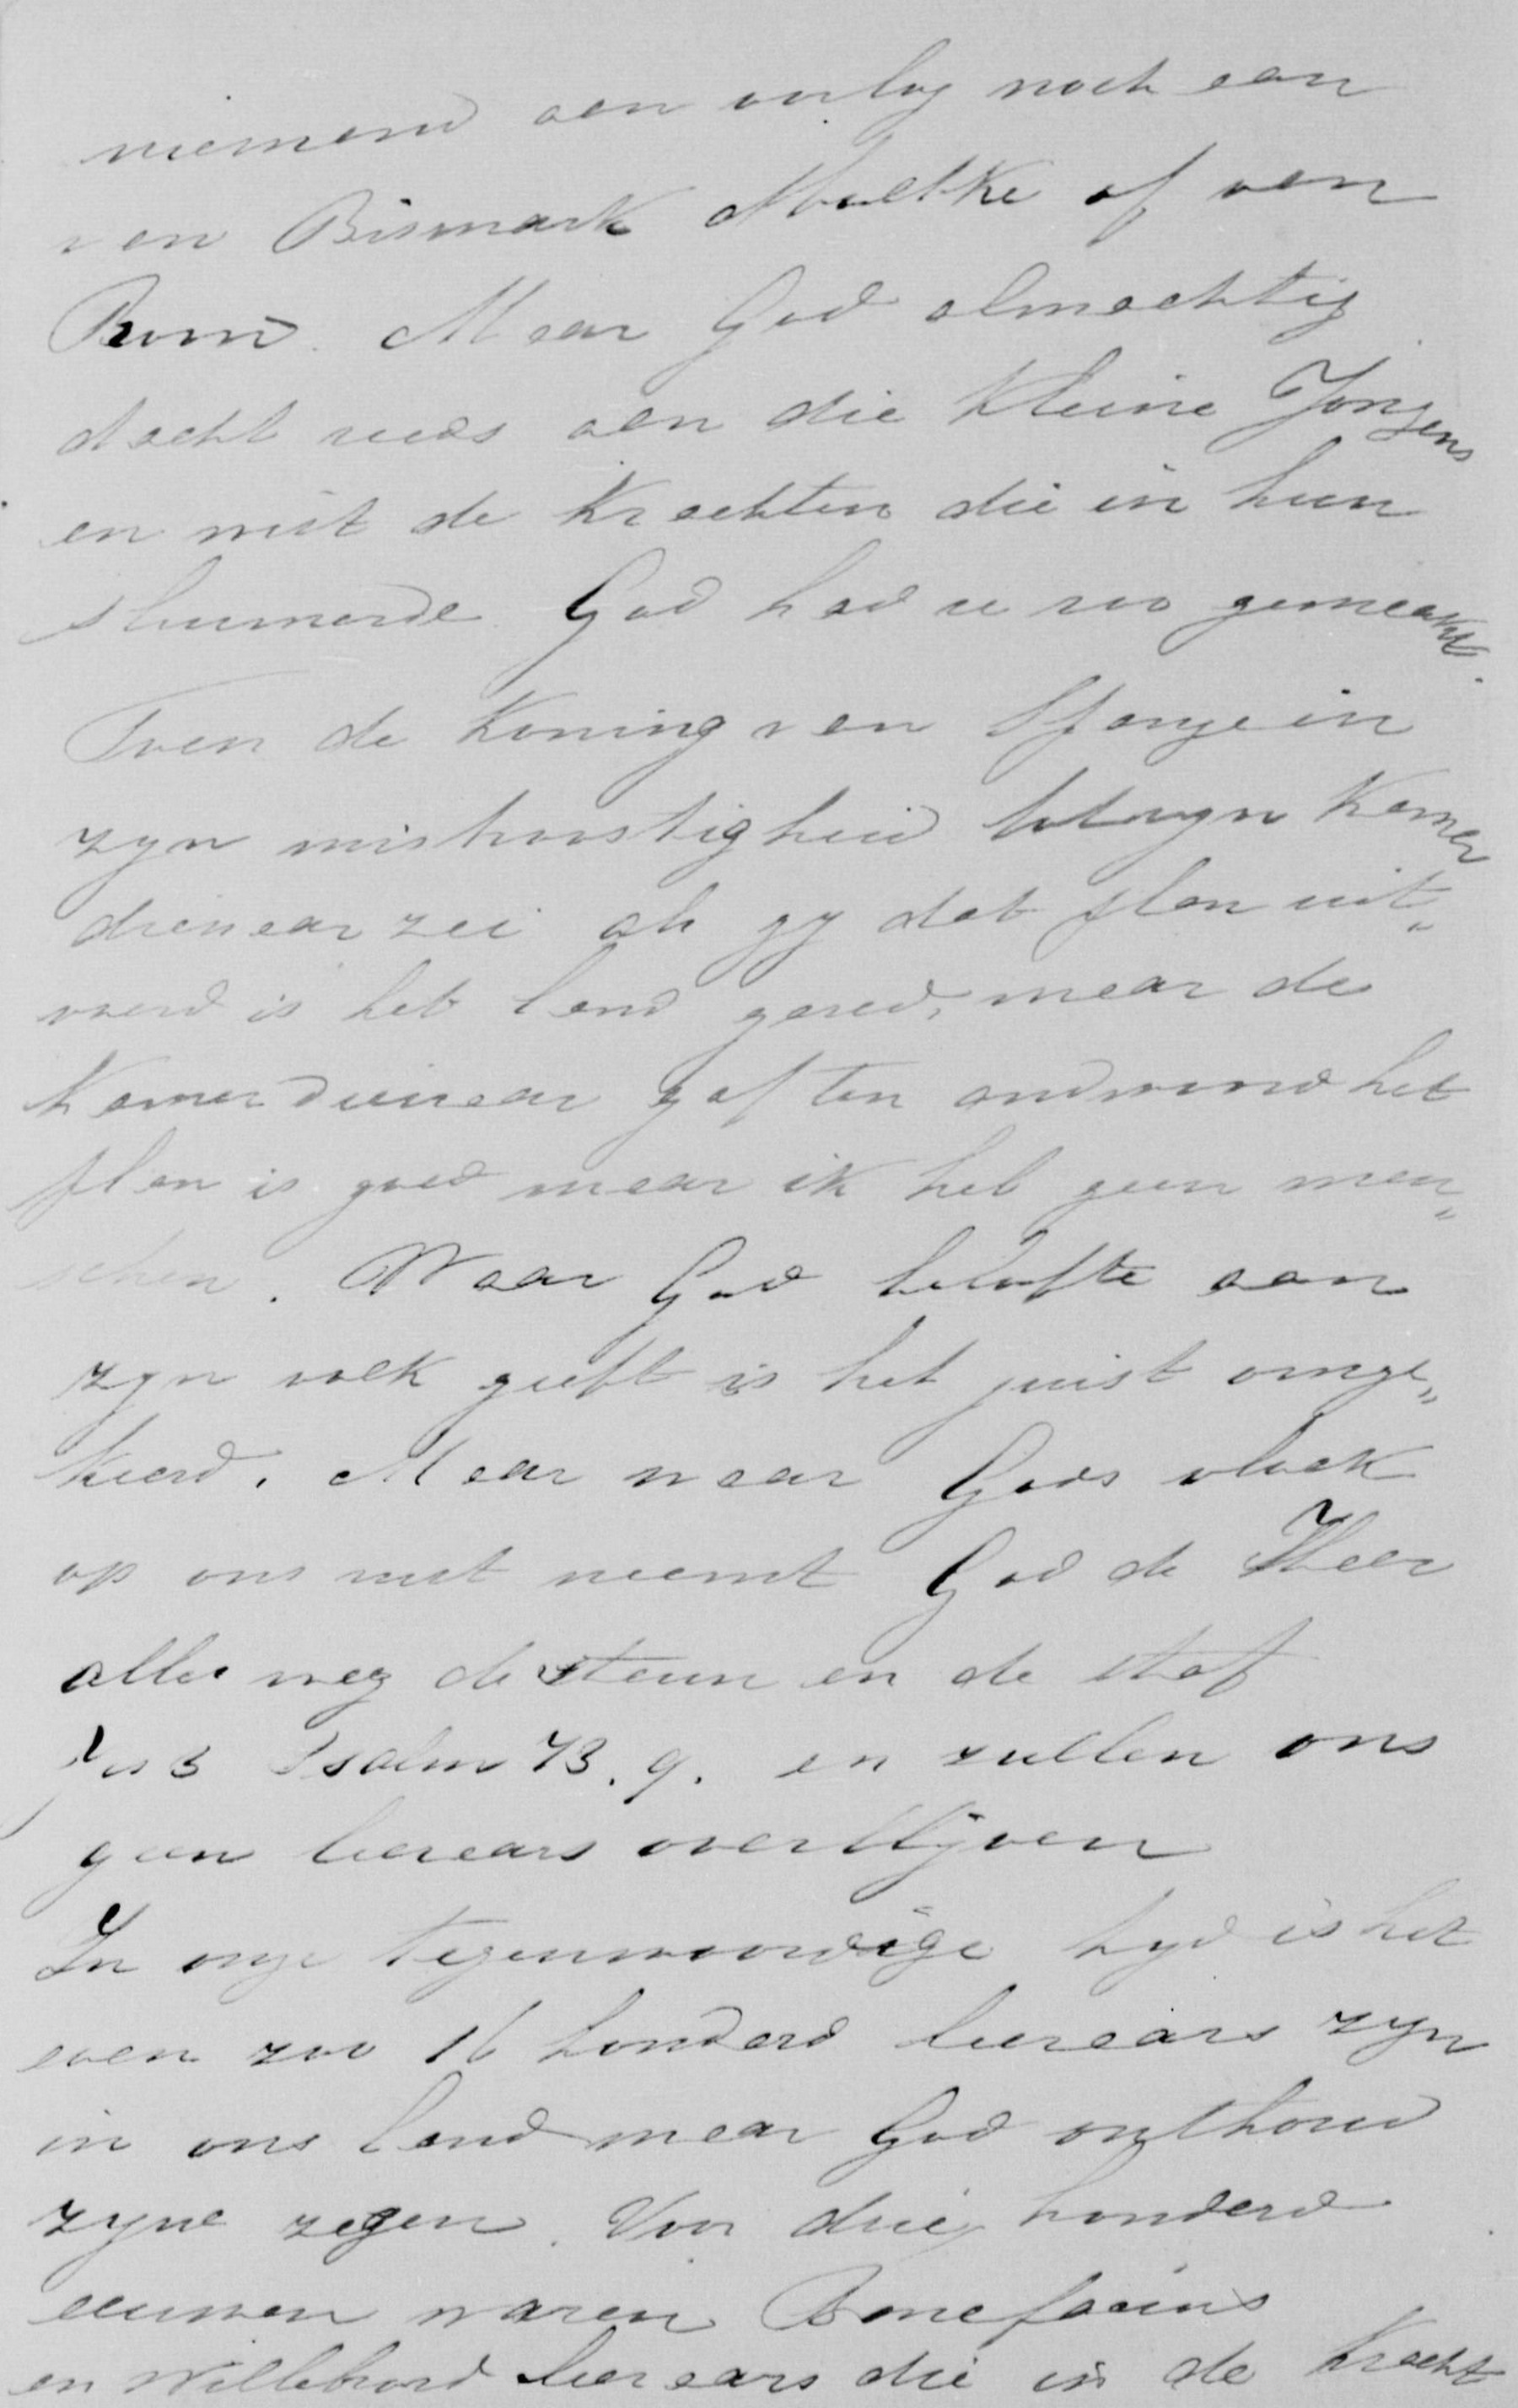 niemand aan oorlog noch aan
van Bismark Moultke of van
Roond. Maar God almachtig
dacht reeds aan die kleine Jongens
en wist de krachten die in hun
sluimerde. God had ze zoo gemaakt.
Toen de koning van Spanje in
zyn mistroostigheid tot zyn kamer
dienaar zei als gy dat plan uit„
voerd is het land gered, maar de
kamerdienaar gaf ten andwoord het
plan is goed maar ik heb geen men„
schen. Waar God belofte aan
zyn volk geeft is het juist omge„
keerd. Maar waar Gods vloek
op ons rust neemt God de Heer
alles weg de steun en de staf
Jes 3 Psalm 73.9. en zullen ons
geen leeraars overblijven
In onze tegenwoordige tyd is het
even zoo 16 honderd leeraars zyn
in ons land maar God onthoud
zyne zegen. Voor drie honderd
eeuwen waren Bonefacius
en Willebrord leeraars die in de kracht